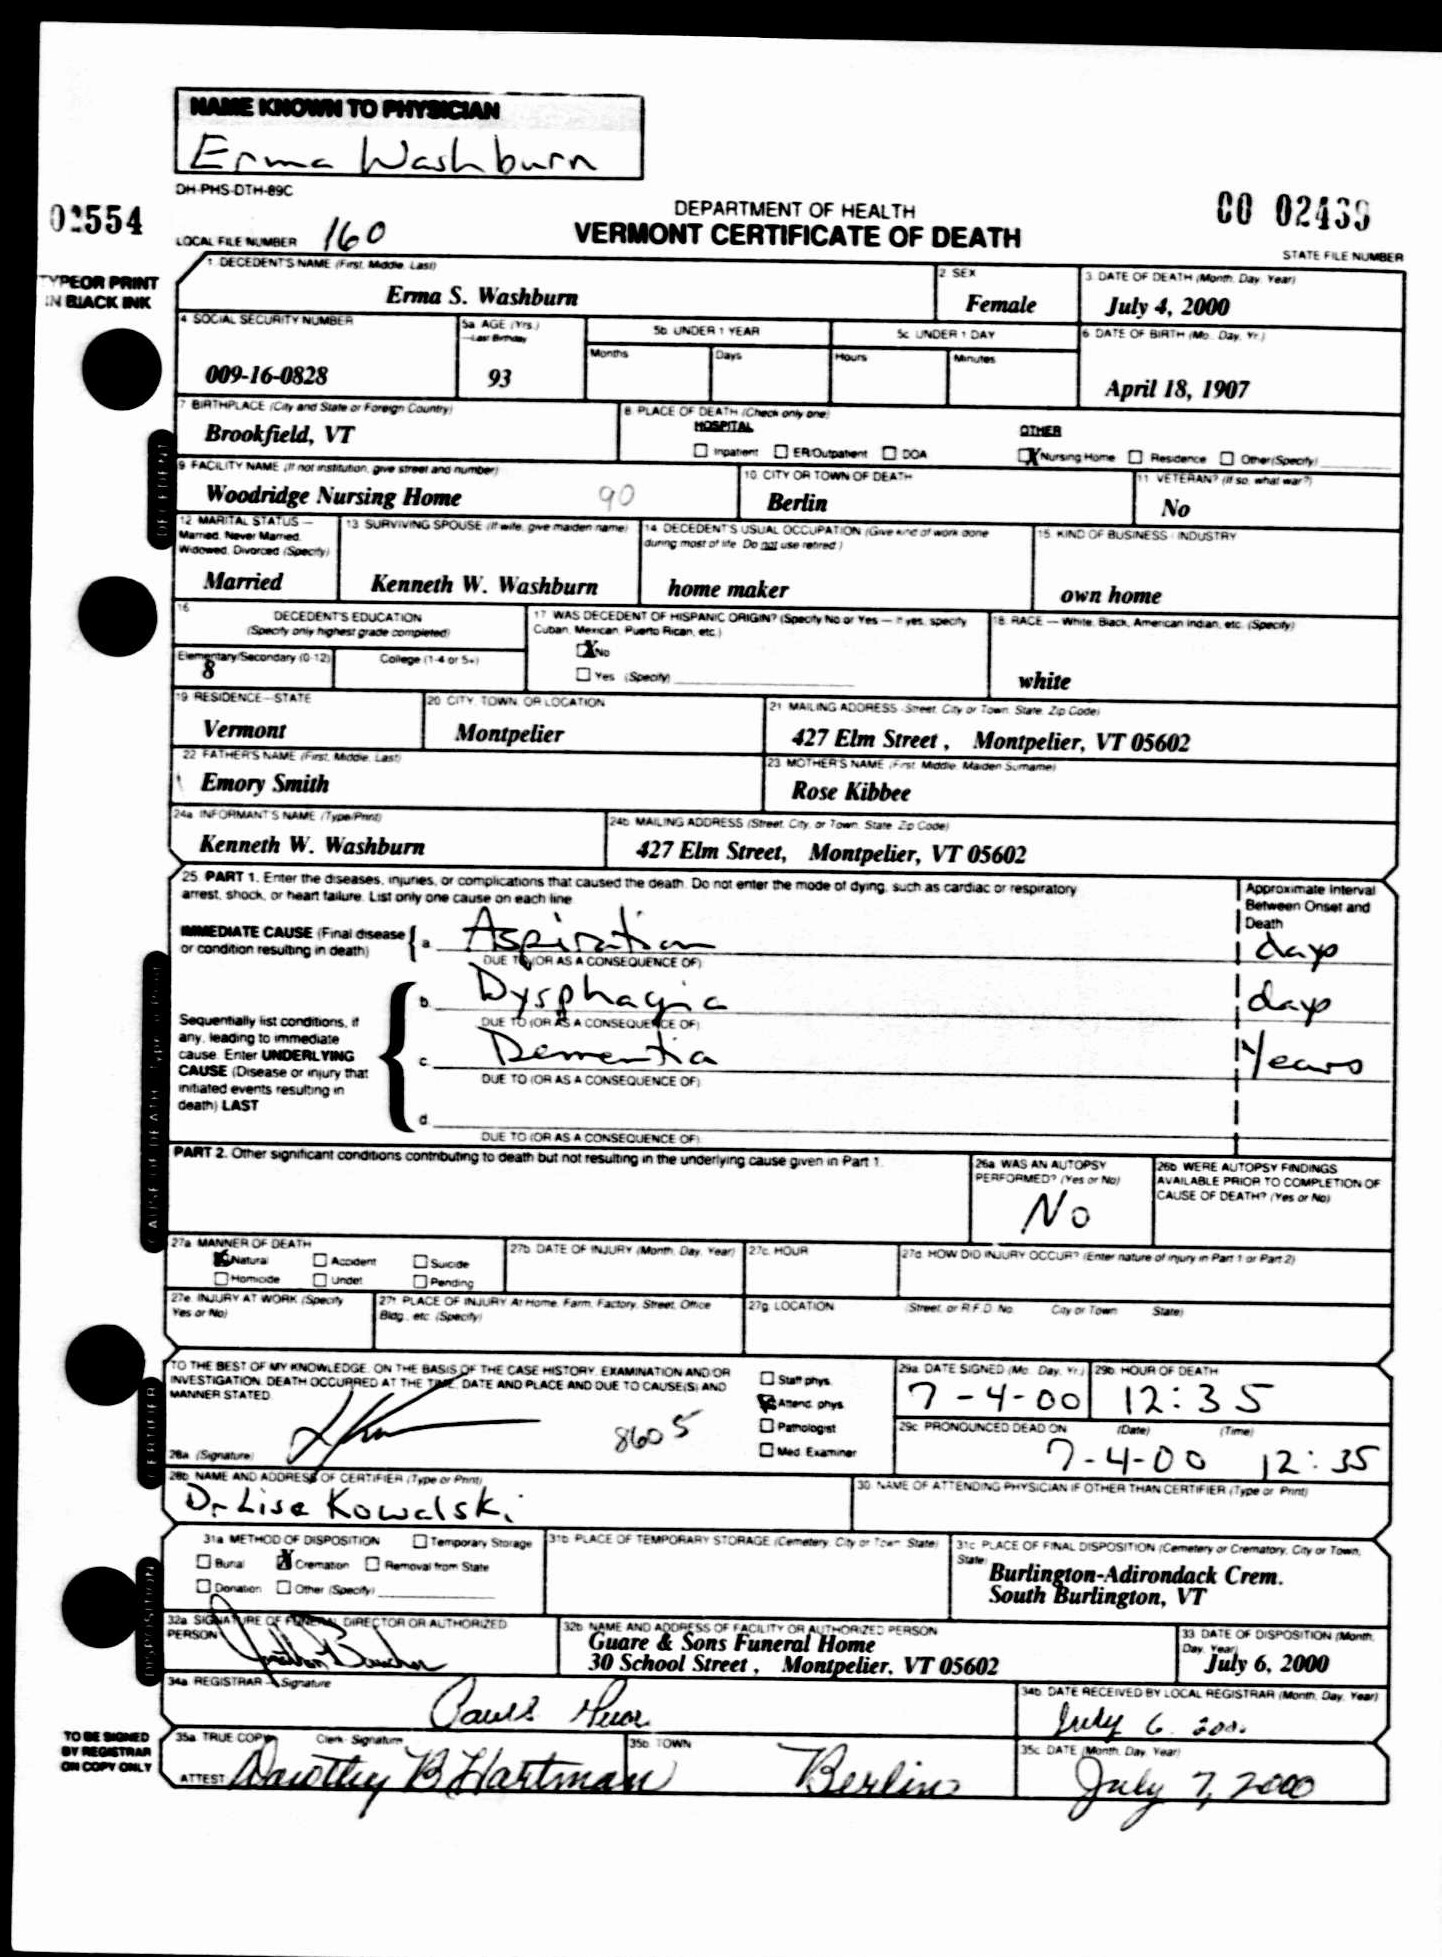 NAME KNOWN TO PHYSICIAN
Erma Washburn
DH-PHS-DTH-89C
02554
LOCAL FILE NUMBER 160
DEPARTMENT OF HEALTH
VERMONT CERTIFICATE OF DEATH
CO 02439
STATE FILE NUMBER
TYPE OR PRINT
IN BLACK INK
1 DECEDENT'S NAME (First, Middle, Last)
Erma S. Washburn
2 SEX
Female
3 DATE OF DEATH (Month, Day, Year)
July 4, 2000
4 SOCIAL SECURITY NUMBER
009-16-0828
5a AGE (Yrs.)
—Last Birthday
93
5b UNDER 1 YEAR
Months
Days
5c UNDER 1 DAY
Hours
Minutes
6 DATE OF BIRTH (Mo., Day, Yr.)
April 18, 1907
7 BIRTHPLACE (City and State or Foreign Country)
Brookfield, VT
8 PLACE OF DEATH (Check only one)
HOSPITAL
Inpatient ER/Outpatient DOA
OTHER
X Nursing Home Residence Other (Specify)
DECEDENT
9 FACILITY NAME (If not institution, give street and number)
Woodridge Nursing Home 90
10 CITY OR TOWN OF DEATH
Berlin
11 VETERAN? (If so, what war?)
No
12 MARITAL STATUS —
Married, Never Married,
Widowed, Divorced (Specify)
Married
13 SURVIVING SPOUSE (If wife, give maiden name)
Kenneth W. Washburn
14 DECEDENT'S USUAL OCCUPATION (Give kind of work done
during most of life. Do not use retired.)
home maker
15 KIND OF BUSINESS / INDUSTRY
own home
16
DECEDENT'S EDUCATION
(Specify only highest grade completed)
Elementary/Secondary (0-12)
8
College (1-4 or 5+)
17 WAS DECEDENT OF HISPANIC ORIGIN? (Specify No or Yes — If yes, specify
Cuban, Mexican, Puerto Rican, etc.)
X No
Yes (Specify)
18 RACE — White, Black, American Indian, etc. (Specify)
white
19 RESIDENCE—STATE
Vermont
20 CITY, TOWN, OR LOCATION
Montpelier
21 MAILING ADDRESS (Street, City or Town, State, Zip Code)
427 Elm Street, Montpelier, VT 05602
22 FATHER'S NAME (First, Middle, Last)
Emory Smith
23 MOTHER'S NAME (First, Middle, Maiden Surname)
Rose Kibbee
24a INFORMANT'S NAME (Type/Print)
Kenneth W. Washburn
24b MAILING ADDRESS (Street, City, or Town, State, Zip Code)
427 Elm Street, Montpelier, VT 05602
25 PART 1. Enter the diseases, injuries, or complications that caused the death. Do not enter the mode of dying, such as cardiac or respiratory
arrest, shock, or heart failure. List only one cause on each line.
Approximate Interval
Between Onset and
Death
IMMEDIATE CAUSE (Final disease
or condition resulting in death)
a. Aspiration days
DUE TO (OR AS A CONSEQUENCE OF)
b. Dysphagia days
DUE TO (OR AS A CONSEQUENCE OF)
Sequentially list conditions, if
any, leading to immediate
cause. Enter UNDERLYING
CAUSE (Disease or injury that
initiated events resulting in
death) LAST
c. Dementia Years
DUE TO (OR AS A CONSEQUENCE OF)
d.
DUE TO (OR AS A CONSEQUENCE OF)
CAUSE OF DEATH
PART 2. Other significant conditions contributing to death but not resulting in the underlying cause given in Part 1.
26a WAS AN AUTOPSY
PERFORMED? (Yes or No)
No
26b WERE AUTOPSY FINDINGS
AVAILABLE PRIOR TO COMPLETION OF
CAUSE OF DEATH? (Yes or No)
27a MANNER OF DEATH
X Natural Accident Suicide
Homicide Undet Pending
27b DATE OF INJURY (Month, Day, Year)
27c HOUR
27d HOW DID INJURY OCCUR? (Enter nature of injury in Part 1 or Part 2)
27e INJURY AT WORK (Specify
Yes or No)
27f PLACE OF INJURY At Home, Farm, Factory, Street, Office
Bldg., etc. (Specify)
27g LOCATION (Street, or R.F.D. No. City or Town State)
TO THE BEST OF MY KNOWLEDGE, ON THE BASIS OF THE CASE HISTORY, EXAMINATION AND/OR
INVESTIGATION, DEATH OCCURRED AT THE TIME, DATE AND PLACE AND DUE TO CAUSE(S) AND
MANNER STATED.
28a (Signature)
8605
Staff phys.
X Attend. phys.
Pathologist
Med. Examiner
29a DATE SIGNED (Mo., Day, Yr.)
7-4-00
29b HOUR OF DEATH
12:35
29c PRONOUNCED DEAD ON (Date) (Time)
7-4-00 12:35
CERTIFIER
28b NAME AND ADDRESS OF CERTIFIER (Type or Print)
Dr Lisa Kowalski
30 NAME OF ATTENDING PHYSICIAN IF OTHER THAN CERTIFIER (Type or Print)
31a METHOD OF DISPOSITION Temporary Storage
Burial X Cremation Removal from State
Donation Other (Specify)
31b PLACE OF TEMPORARY STORAGE (Cemetery, City or Town, State)
31c PLACE OF FINAL DISPOSITION (Cemetery or Crematory, City or Town,
State)
Burlington-Adirondack Crem.
South Burlington, VT
DISPOSITION
32a SIGNATURE OF FUNERAL DIRECTOR OR AUTHORIZED
PERSON
32b NAME AND ADDRESS OF FACILITY OR AUTHORIZED PERSON
Guare & Sons Funeral Home
30 School Street, Montpelier, VT 05602
33 DATE OF DISPOSITION (Month,
Day, Year)
July 6, 2000
34a REGISTRAR — Signature
34b DATE RECEIVED BY LOCAL REGISTRAR (Month, Day, Year)
July 6 2000
TO BE SIGNED
BY REGISTRAR
ON COPY ONLY
35a TRUE COPY Clerk Signature
ATTEST Dorothy B Hartman
35b TOWN
Berlin
35c DATE (Month, Day, Year)
July 7, 2000